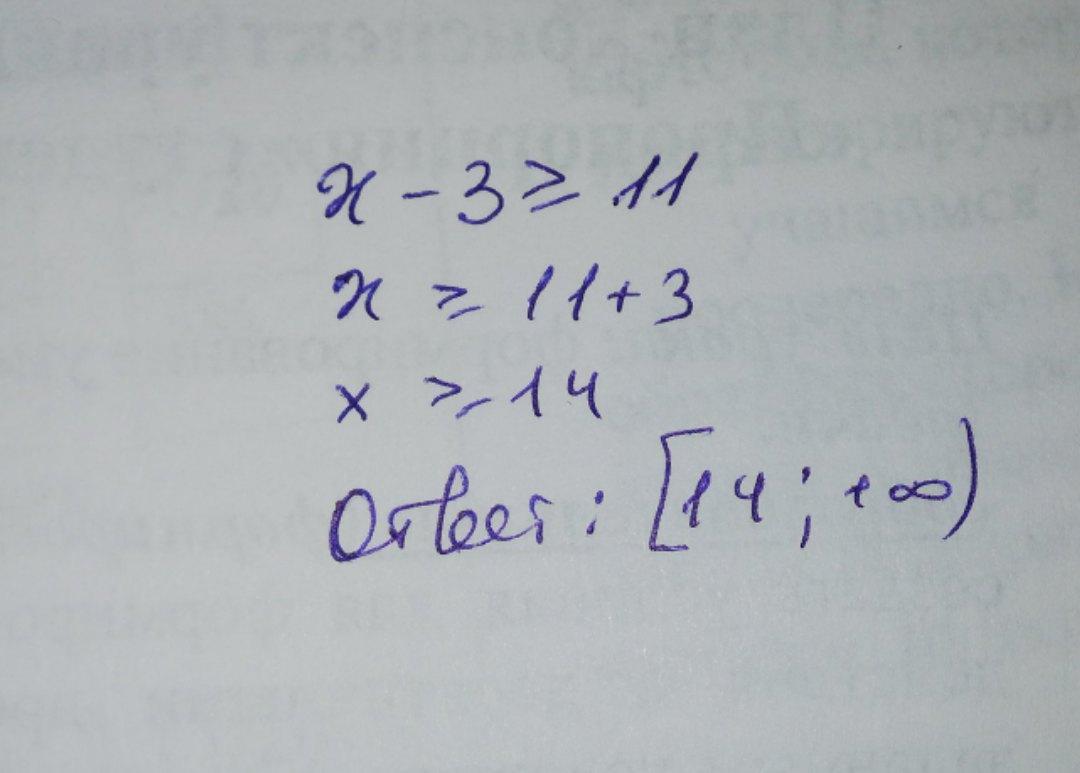 x - 3 ≥ 11
x ≥ 11 + 3
x ≥ 14
Ответ: [14; +∞)